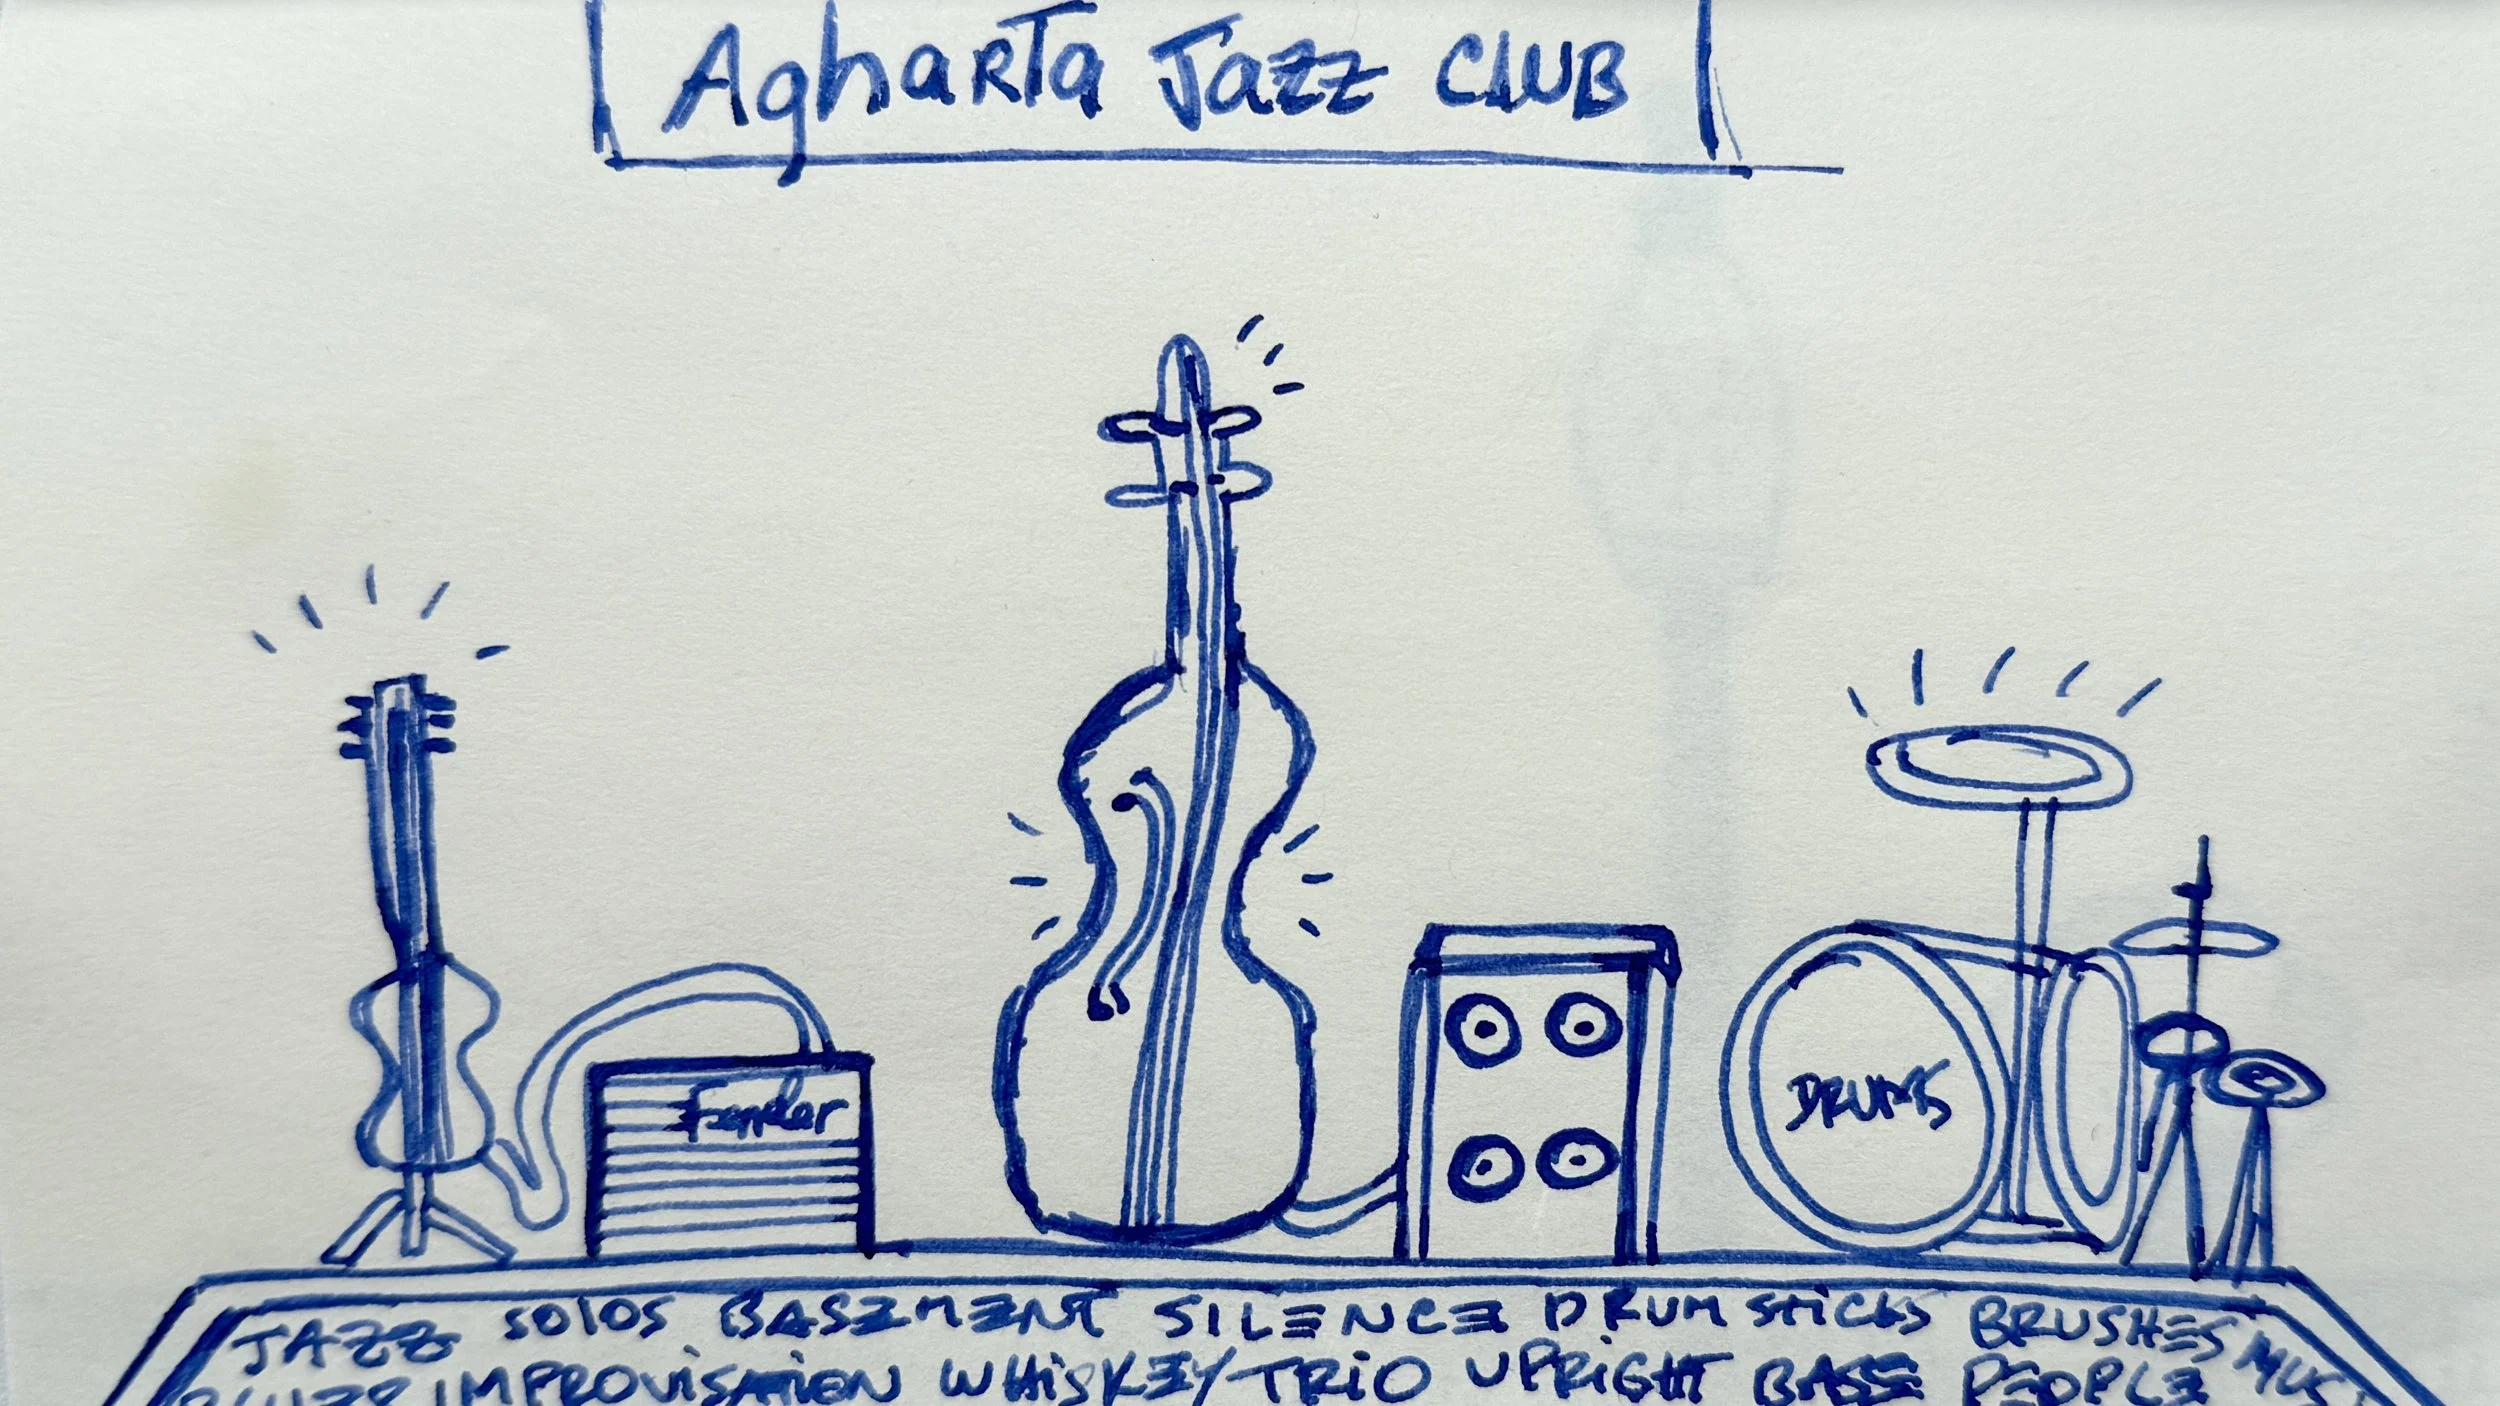 AgharTa Jazz CLUB
Fender
DRUMS
JAZZ SOLOS BASEMENT SILENCE DRUM STICKS BRUSHES
IMPROVISATION WHiSKEY TRiO UPRiGHT BASE PEOPLE